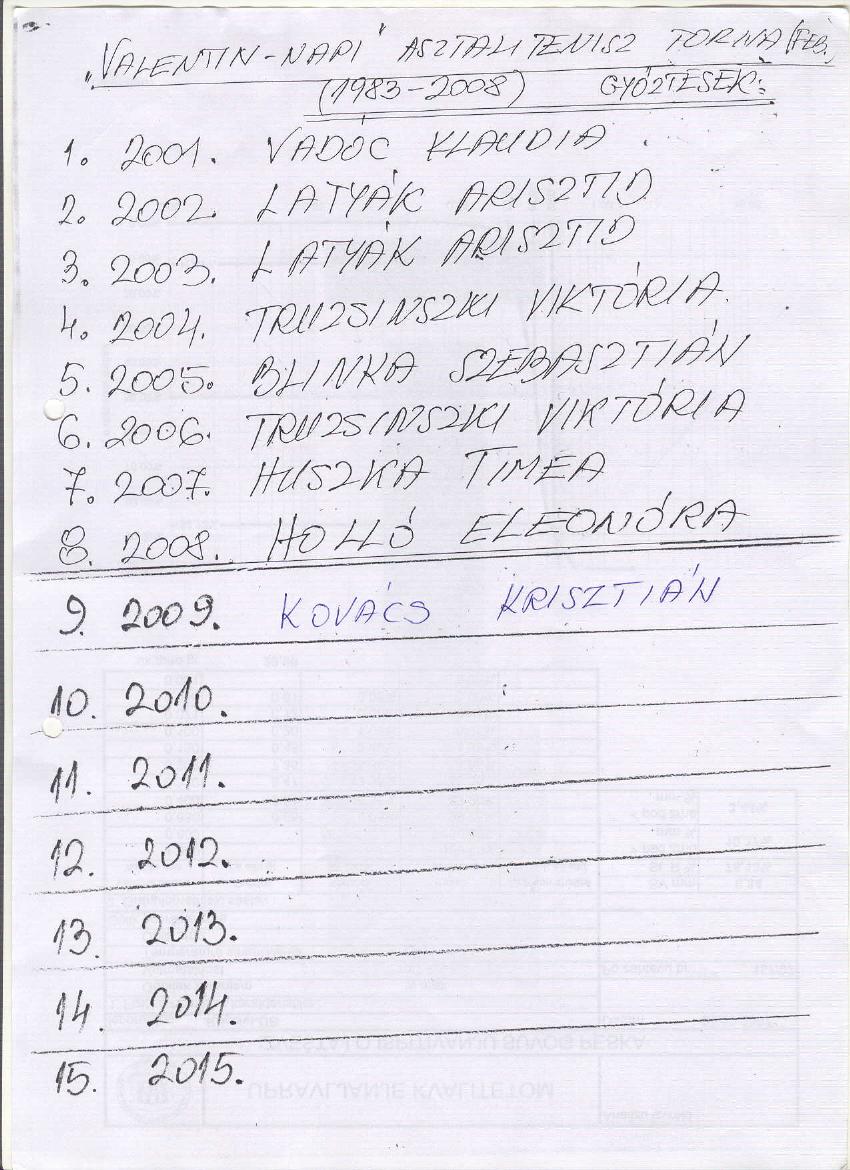 „VALENTIN-NAPI” ASZTALITENISZ TORNA (FEB.)
(1983-2008) GYŐZTESEK:
1. 2001. VADÓC KLAUDIA
2. 2002. LATYÁK ARISZTID
3. 2003. LATYÁK ARISZTID
4. 2004. TRUZSINSZKI VIKTÓRIA
5. 2005. BLINKA SZEBASZTIÁN
6. 2006. TRUZSINSZKI VIKTÓRIA
7. 2007. HUSZKA TIMEA
8. 2008. HOLLÓ ELEONÓRA
9. 2009. KOVÁCS KRISZTIÁN
10. 2010.
11. 2011.
12. 2012.
13. 2013.
14. 2014.
15. 2015.
UPRAVLJANJE KVALITETOM